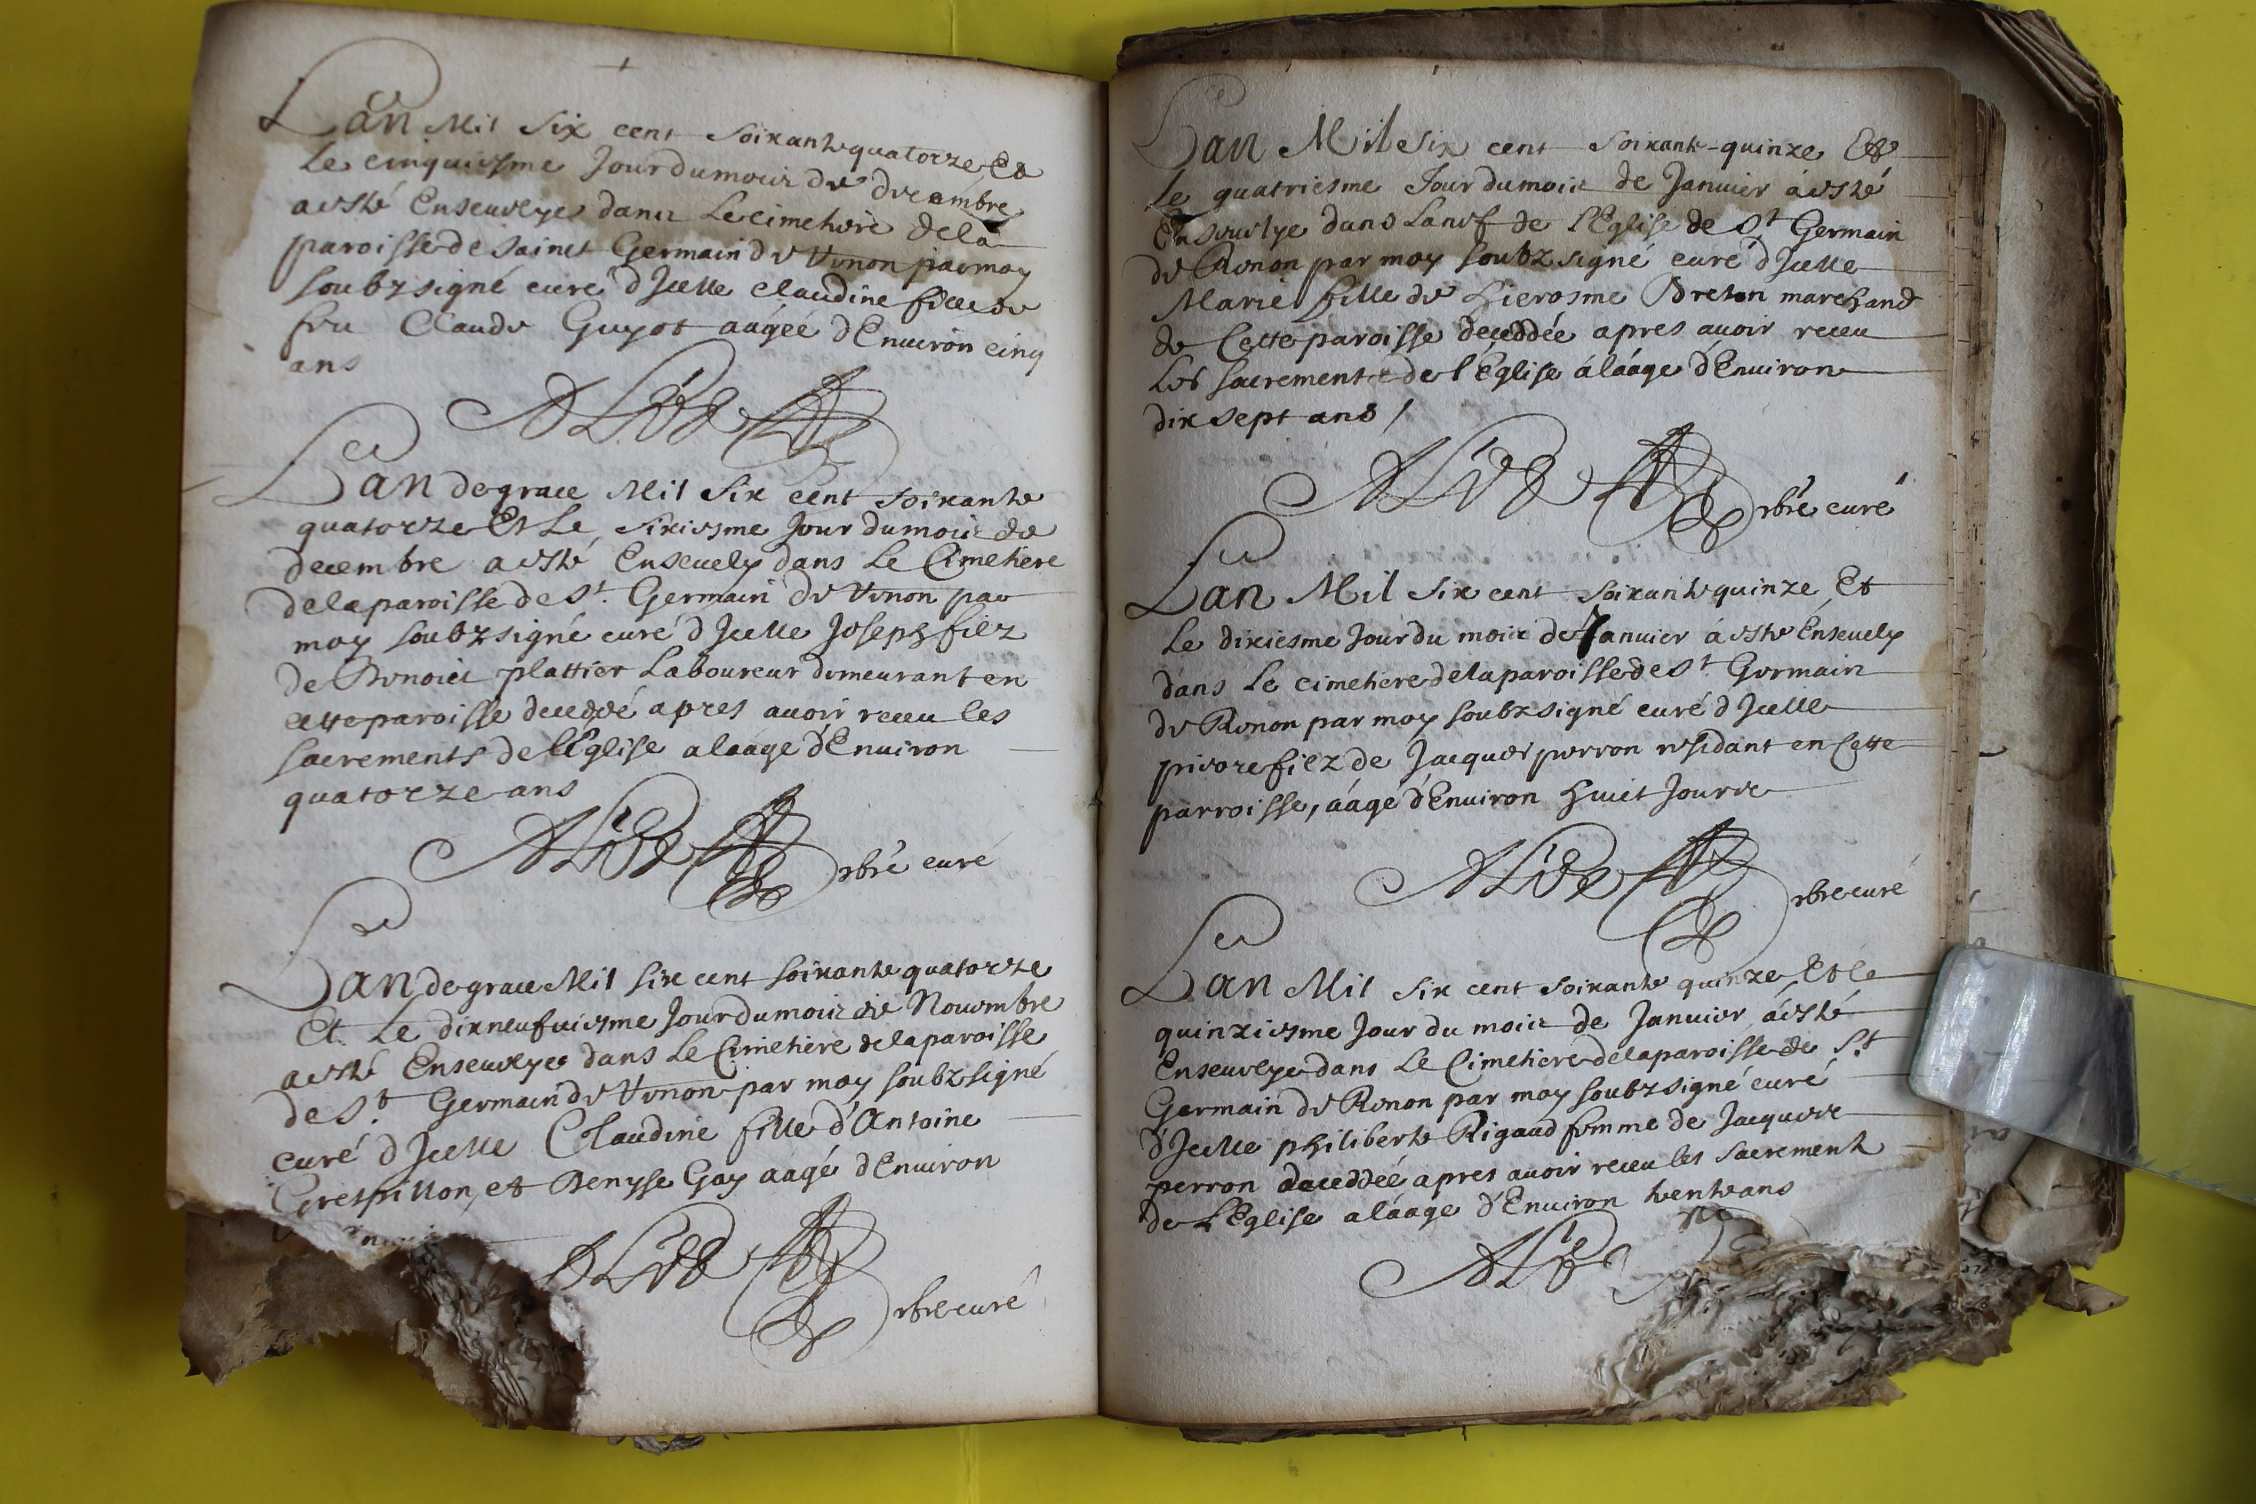 Lan Mil Six cent Soixante quatorze Et
Le cinquiesme Jour du mois de decembre
a esté Ensevelye dans Le cimetiere de la
paroisse de Sainct Germain de Renon par moy
soubzsigné curé d'Icelle Claudine fille de
feu Claude Guyot aágeé d'Environ cinq
ans
ALIDE
Lan de grace Mil Six cent Soixante
quatorze Et Le sixiesme Jour du mois de
decembre a esté Ensevely dans Le Cimetiere
de la paroisse de St. Germain de Renon par
moy soubzsigné curé d'Icelle Joseph filz
de Benoict plattier Laboureur demeurant en
cette paroisse decedé apres avoir receu les
sacrements de l'Eglise a laage d'Environ
quatorze ans
ALIDE pbre curé
Lan de grace Mil six cent soixante quatorze
Et Le dixneufviesme Jour du mois de Novembre
a esté Ensevelye dans Le Cimetiere de la paroisse
de St. Germain de Renon par moy soubzsigné
curé d'Icelle Claudine fille d'Antoine
Grespillon, et Denyse Gay aagé d'Environ
ALIDE pbre curé
Lan Mil Six cent Soixante-quinze Et
le quatriesme Jour du mois de Janvier á esté
Ensevelye dans La nef de l'Eglise de St Germain
de Renon par moy soubzsigné curé d'Icelle
Marie fille de Hierosme Breton marchand
de Cette paroisse deceddée apres avoir receu
Les sacrements de l'Eglise á laáge d'Environ
dix sept ans /
ALIDE pbre curé
Lan Mil Six cent Soixante quinze Et
Le dixiesme Jour du mois de Janvier á esté Ensevely
dans Le cimetiere de la paroisse de St Germain
de Renon par moy soubzsigné curé d'Icelle
pierre filz de Jacques perron residant en Cette
parroisse, aágé d'Environ huict Jours
ALIDE pbre curé
Lan Mil Six cent Soixante quinze, Et le
quinziesme Jour du mois de Janvier á esté
Ensevelye dans Le Cimetiere de la paroisse de St
Germain de Renon par moy soubzsigné curé
d'Icelle philiberte Rigaud femme de Jacques
perron deceddeé apres avoir receu les sacrements
de L'Eglise a laáge d'Environ trente ans